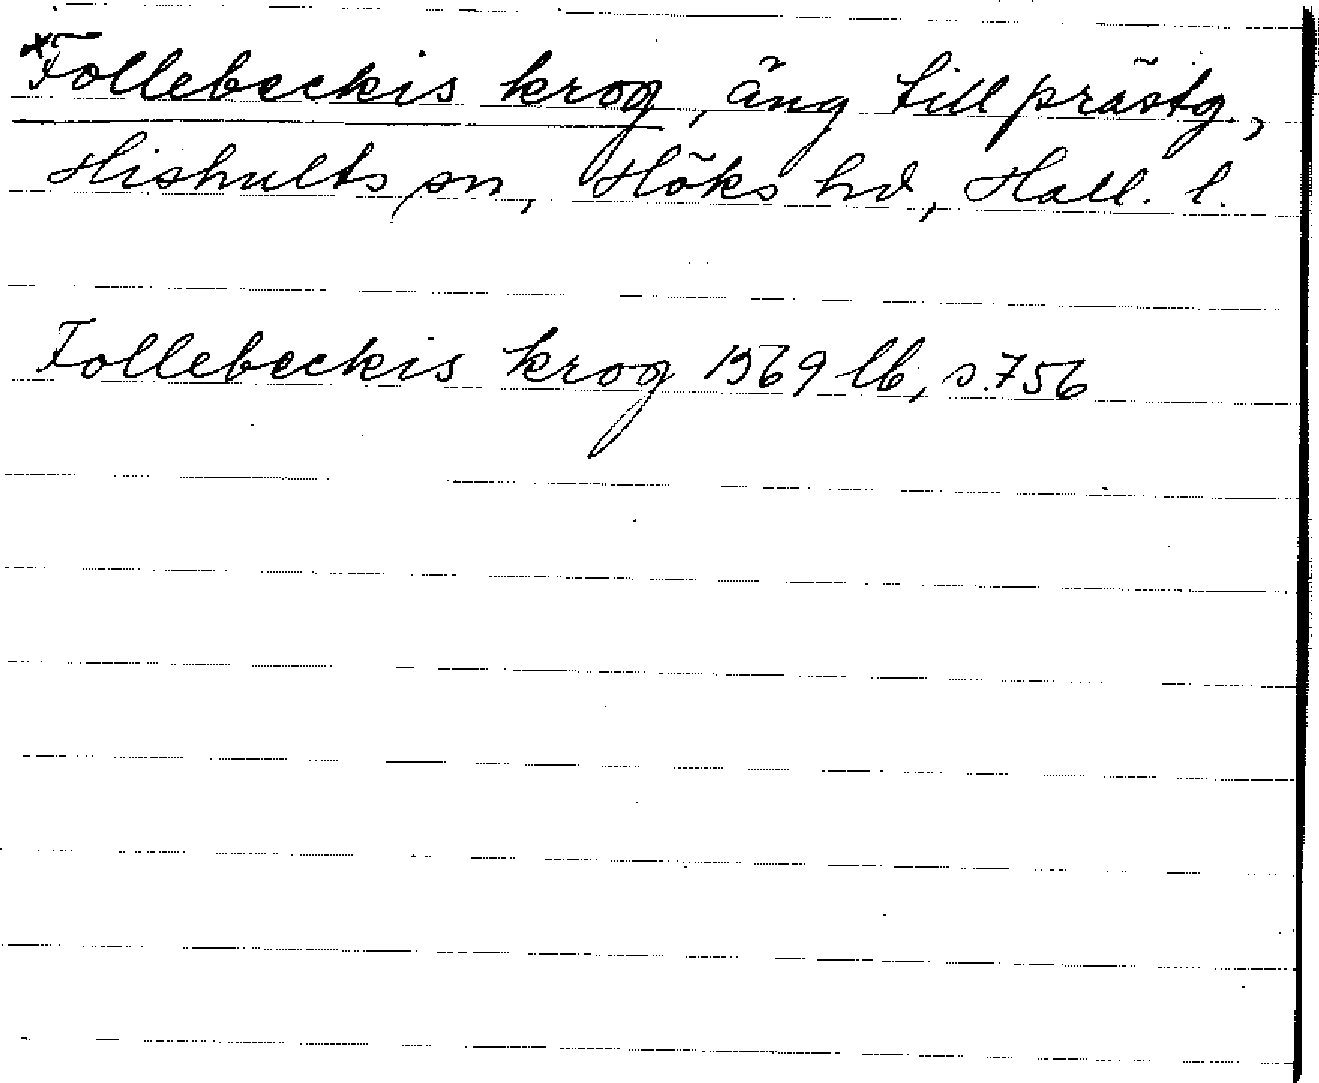 *Follebeckis krog, äng till prästg.,
Hishults sn, Höks hd, Hall. l.
Follebeckis krog 1569 lb, s. 756